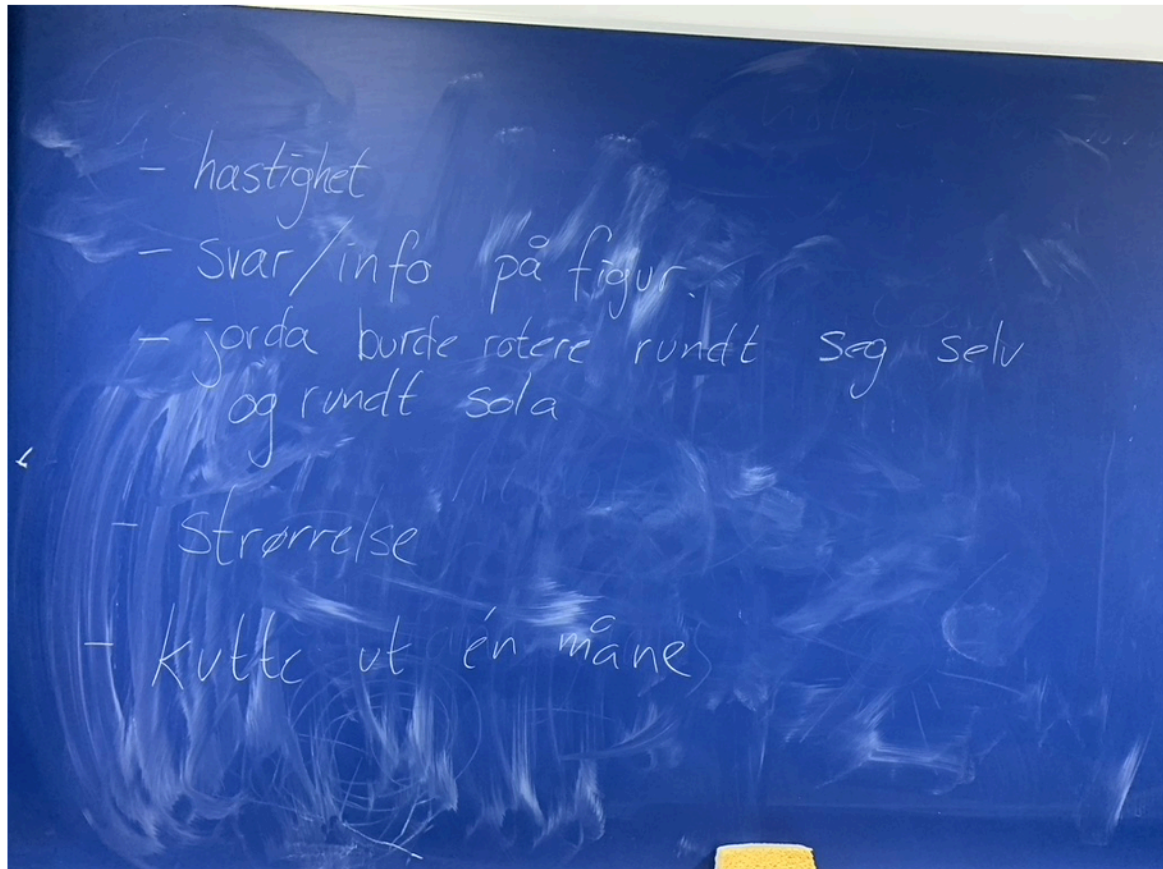 - hastighet
- svar/info på figur.
- jorda burde rotere rundt seg selv
og rundt sola
- strørrelse
- kutte ut én måne